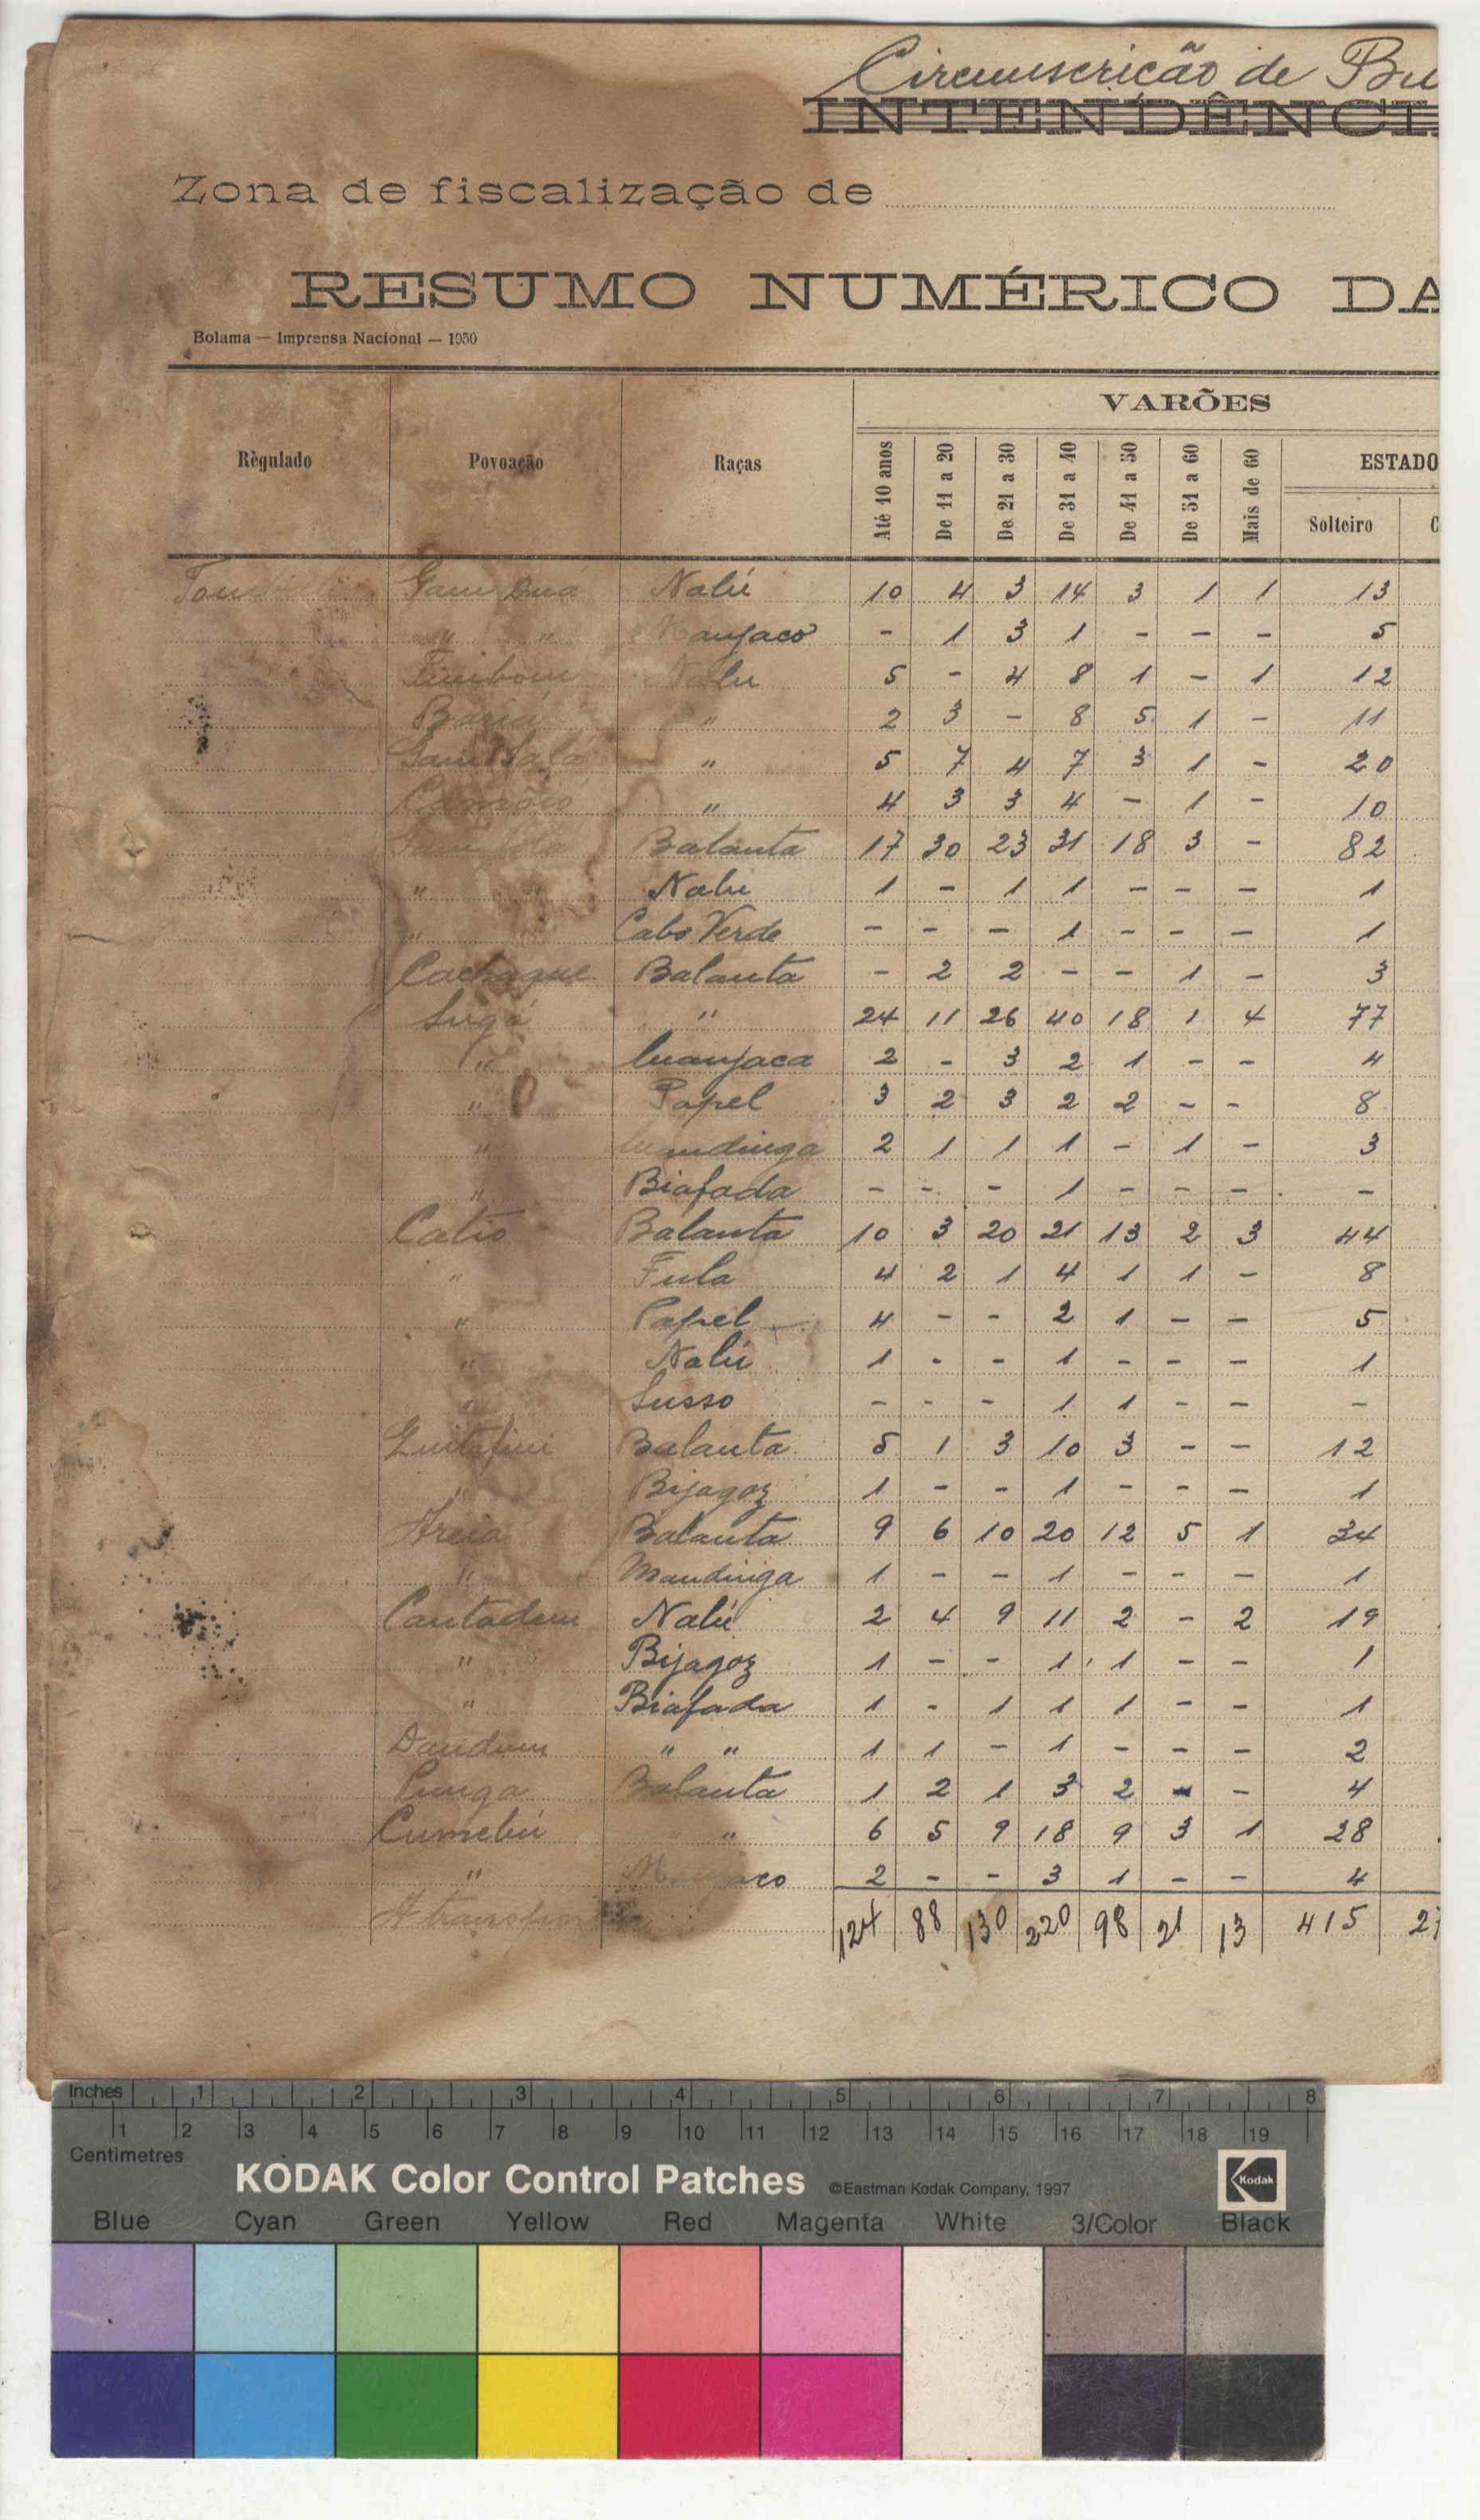 Circunscrição de Bu
INTENDÊNCI
Zona de fiscalização de
RESUMO NUMÉRICO DA
Bolama — Imprensa Nacional — 1950
VARÕES
Règulado Povoação Raças Até 10 anos De 11 a 20 De 21 a 30 De 31 a 40 De 41 a 50 De 51 a 60 Mais de 60 ESTADO
Solteiro C
Nalú 10 4 3 14 3 1 1 13
" " Manjaco - 1 3 1 - - - 5
Nalu 5 - 4 8 1 - 1 12
" 2 3 - 8 5 1 - 11
" 5 7 4 7 3 1 - 20
" 4 3 3 4 - 1 - 10
Balanta 17 30 23 31 18 3 - 82
" Nalu 1 - 1 1 - - - 1
" Cabo Verde - - - 1 - - - 1
Cachaque Balanta - 2 2 - - 1 - 3
Sugá " 24 11 26 40 18 1 4 77
" manjaca 2 - 3 2 1 - - 4
" Papel 3 2 3 2 2 - - 8
" mandinga 2 1 1 1 - 1 - 3
" Biafada - - - 1 - - - -
Catio Balanta 10 3 20 21 13 2 3 44
" Fula 4 2 1 4 1 1 - 8
" Papel 4 - - 2 1 - - 5
" Nalú 1 - - 1 - - - 1
" Susso - - - 1 1 - - -
Balanta 5 1 3 10 3 - - 12
" Bijagoz 1 - - 1 - - - 1
Areia Balanta 9 6 10 20 12 5 1 34
" Mandinga 1 - - 1 - - - 1
Cantadum Nalú 2 4 9 11 2 - 2 19
" Bijagoz 1 - - 1 1 - - 1
" Biafada 1 - 1 1 1 - - 1
Dandum " " 1 1 - 1 - - - 2
Punga Balanta 1 2 1 3 2 - - 4
Cumebú " 6 5 9 18 9 3 1 28
" Manjaco 2 - - 3 1 - - 4
A transpor 124 88 130 220 98 21 13 415 27
Inches 1 2 3 4 5 6 7 8
1 2 3 4 5 6 7 8 9 10 11 12 13 14 15 16 17 18 19
Centimetres
KODAK Color Control Patches ©Eastman Kodak Company, 1997 Kodak
Blue Cyan Green Yellow Red Magenta White 3/Color Black